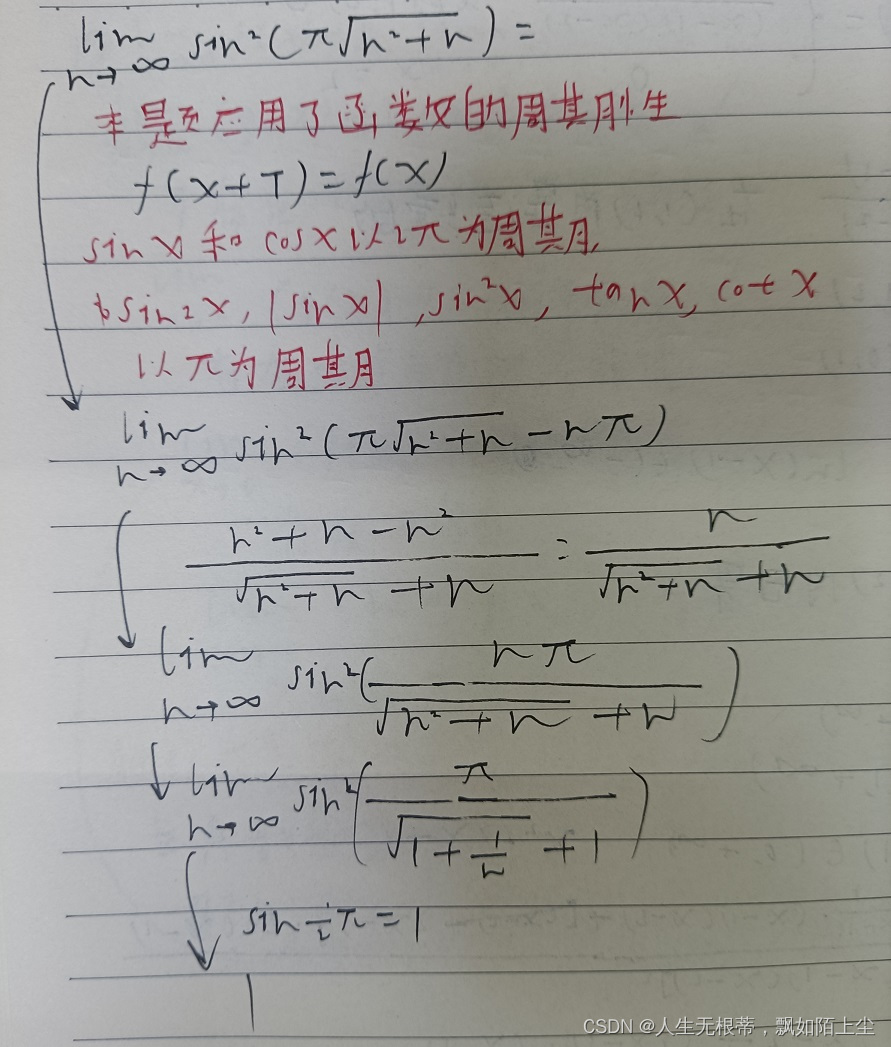 lim n→∞ sin²(π√(n²+n)) =
本题应用了函数的周期性
f(x+T)=f(x)
sinx和cosx以2π为周期,
sin2x, |sinx|, sin²x, tanx, cotx
以π为周期
lim n→∞ sin²(π√(n²+n) - nπ)
(n²+n-n²)/(√(n²+n)+n) = n/(√(n²+n)+n)
lim n→∞ sin²(nπ/(√(n²+n)+n))
lim n→∞ sin²(π/(√(1+1/n)+1))
sin½π=1
1
CSDN @人生无根蒂，飘如陌上尘